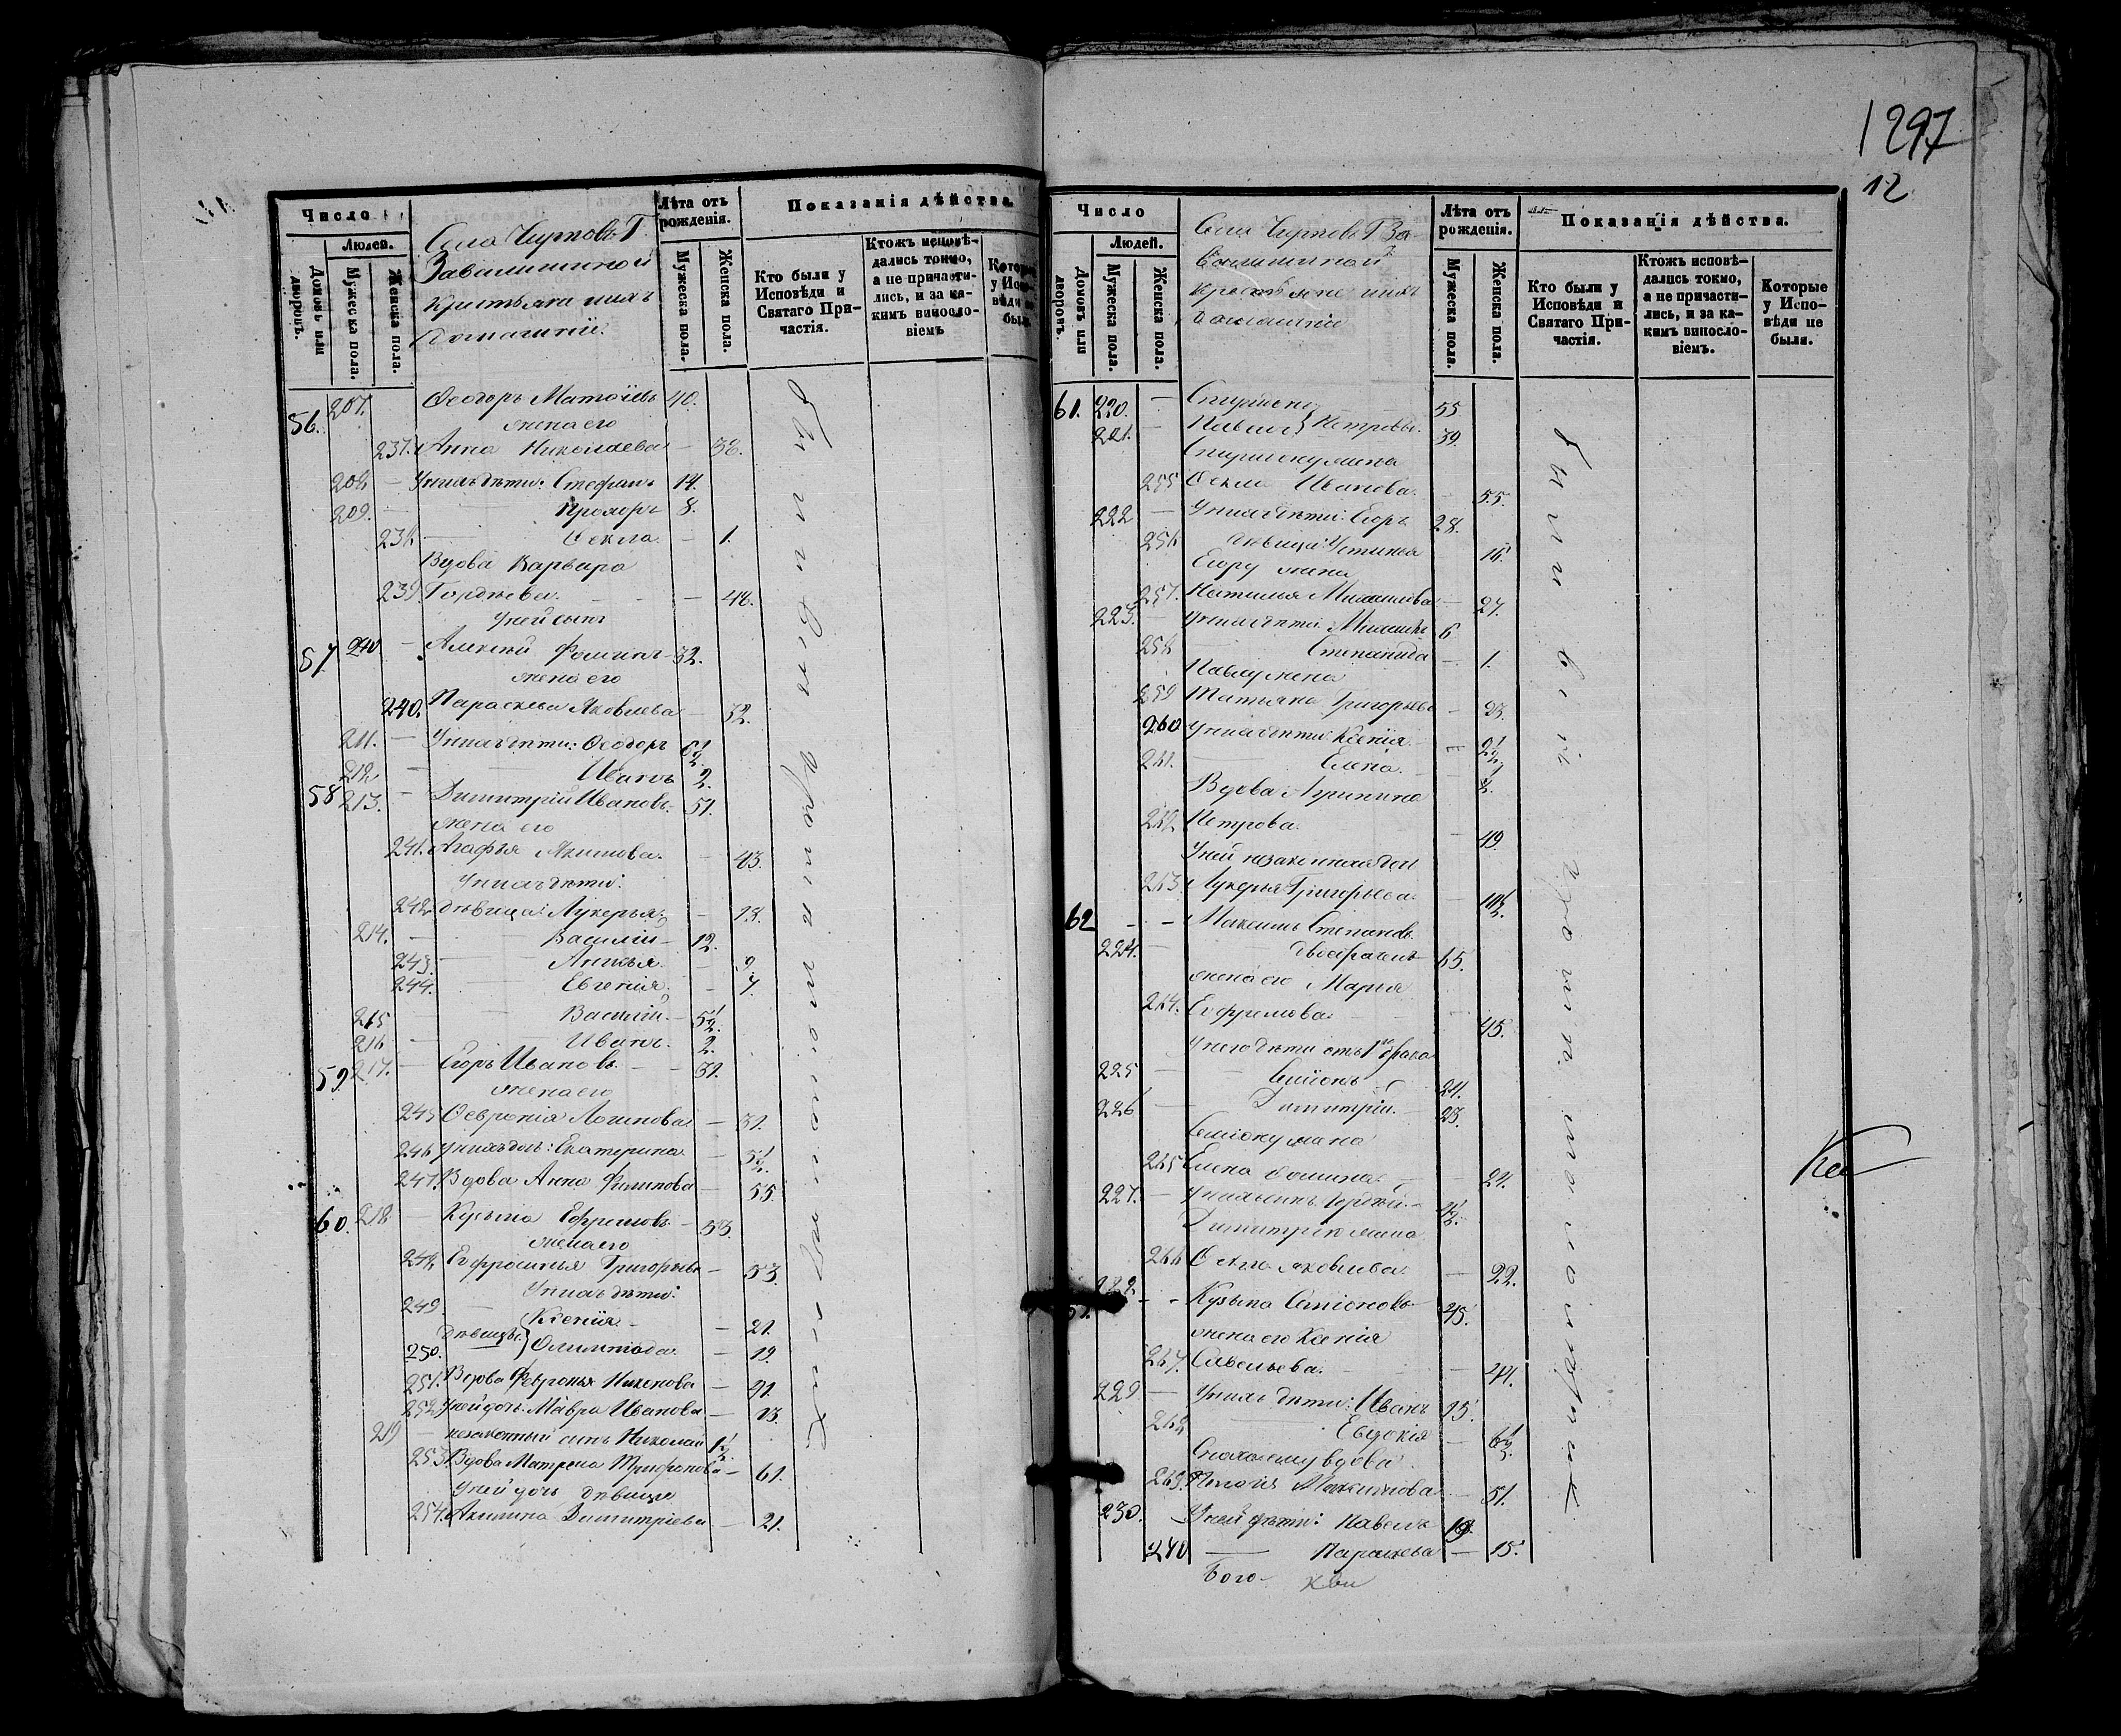 1297
12
Число
Людей.
Домовъ или дворовъ.
Мужеска пола.
Женска пола.
Села Чирковъ Г.
Завалишиной
крестьяне и ихъ
домашніи.
Лѣта отъ рожденія.
Мужеска пола.
Женска пола.
Показанія дѣйства.
Кто были у Исповѣди и Святаго Причастія.
Ктожъ исповѣдались токмо, а не причастились, и за какимъ винословіемъ
56. 207. Ѳеодоръ Матѳіевъ 40.
жена его
237. Анна Николаева — 38.
208. — У нихъ дѣти: Стефанъ 14.
209. — Прохоръ 8.
238. — Ѳекла — 1.
Вдова Варвара
239. Гордѣева — 48.
У ней сынъ
57 210 — Алексѣй Фоминъ 32.
жена его
240. Параскева Яковлева — 32.
211. — У нихъ дѣти: Ѳеодоръ 6½
212 — Иванъ 2.
58 213. — Димитрій Ивановъ 51.
жена его
241. Агафья Акимова — 43.
У нихъ дѣти:
242. дѣвица: Лукерья — 18.
214. — Василій — 12.
243. — Анисья — 9.
244. — Евгенія — 7.
215 — Василій 5½.
216 — Иванъ 2.
59 217. — Егоръ Ивановъ — 31.
жена его
245 Ѳевронія Логинова — 31.
246 У нихъ дочь: Екатерина — 5½.
247. Вдова Анна Филипова — 55
60. 218 — Кузьма Ефремовъ — 53.
жена его
248. Евфросинья Григорьева — 53.
У нихъ дѣти:
249 — Ксенія — 21.
дѣвицы
250. Олимпіада — 19.
251. Вдова Февронья — 91.
252 У ней дочь: Мавра Иванова — 23.
219 — незаконный сынъ Николай 1½
253. Вдова Матрена — 61.
У ней дочь дѣвица
254. Акилина Димитріева — 21.
Были вси
Число
Людей.
Домовъ или дворовъ.
Мужеска пола.
Женска пола.
Села Чирковъ Г. За-
валишиной
крестьяне и ихъ
домашніе
Лѣта отъ рожденія.
Мужеска пола.
Женска пола.
Показанія дѣйства.
Кто были у Исповѣди и Святаго Причастія.
Ктожъ исповѣдались токмо, а не причастились, и за какимъ винословіемъ.
Которые у Исповѣди не были.
61. 220. — 55
221. — Павелъ } Петровы. 39.
жена
255 Ѳекла Иванова — 55.
222 — У нихъ дѣти: Егоръ 28.
256 дѣвица: Устинья — 16.
Егору жена
257. Наталья Михайлова — 27.
223. — У нихъ дѣти: Михаилъ 6
258 Степанида — 1.
Павлу жена
259 Татьяна Григорьева — 23.
260 У нихъ дѣти: Ксенія — 2½
261. — Елена — ½.
Вдова Агрипина
262 Петрова — 49.
У ней незаконная дочь
263 Лукерья Григорьева — 10½.
62 — Максимъ Степановъ
224. — двоебраченъ 65.
жена его Марья
264. Евфремова — 45.
У него дѣти отъ 1го брака
225 — Симіонъ — 24.
226 — Димитрій — 23.
Симіону жена
265 Елена Фомина — 24.
227. — У нихъ сынъ
Димитрію жена
266 Яковлева — 22.
228 — Кузьма Симіоновъ 45.
жена его Ксенія
267. Савельева — 44.
229 — У нихъ дѣти: Иванъ 15.
268 — Евдокія — 6½.
Сноха ему вдова
269. Максимова — 51.
230. — У ней дѣти: Павелъ 19.
270 — Параскева — 15.
Были вси
Бого-